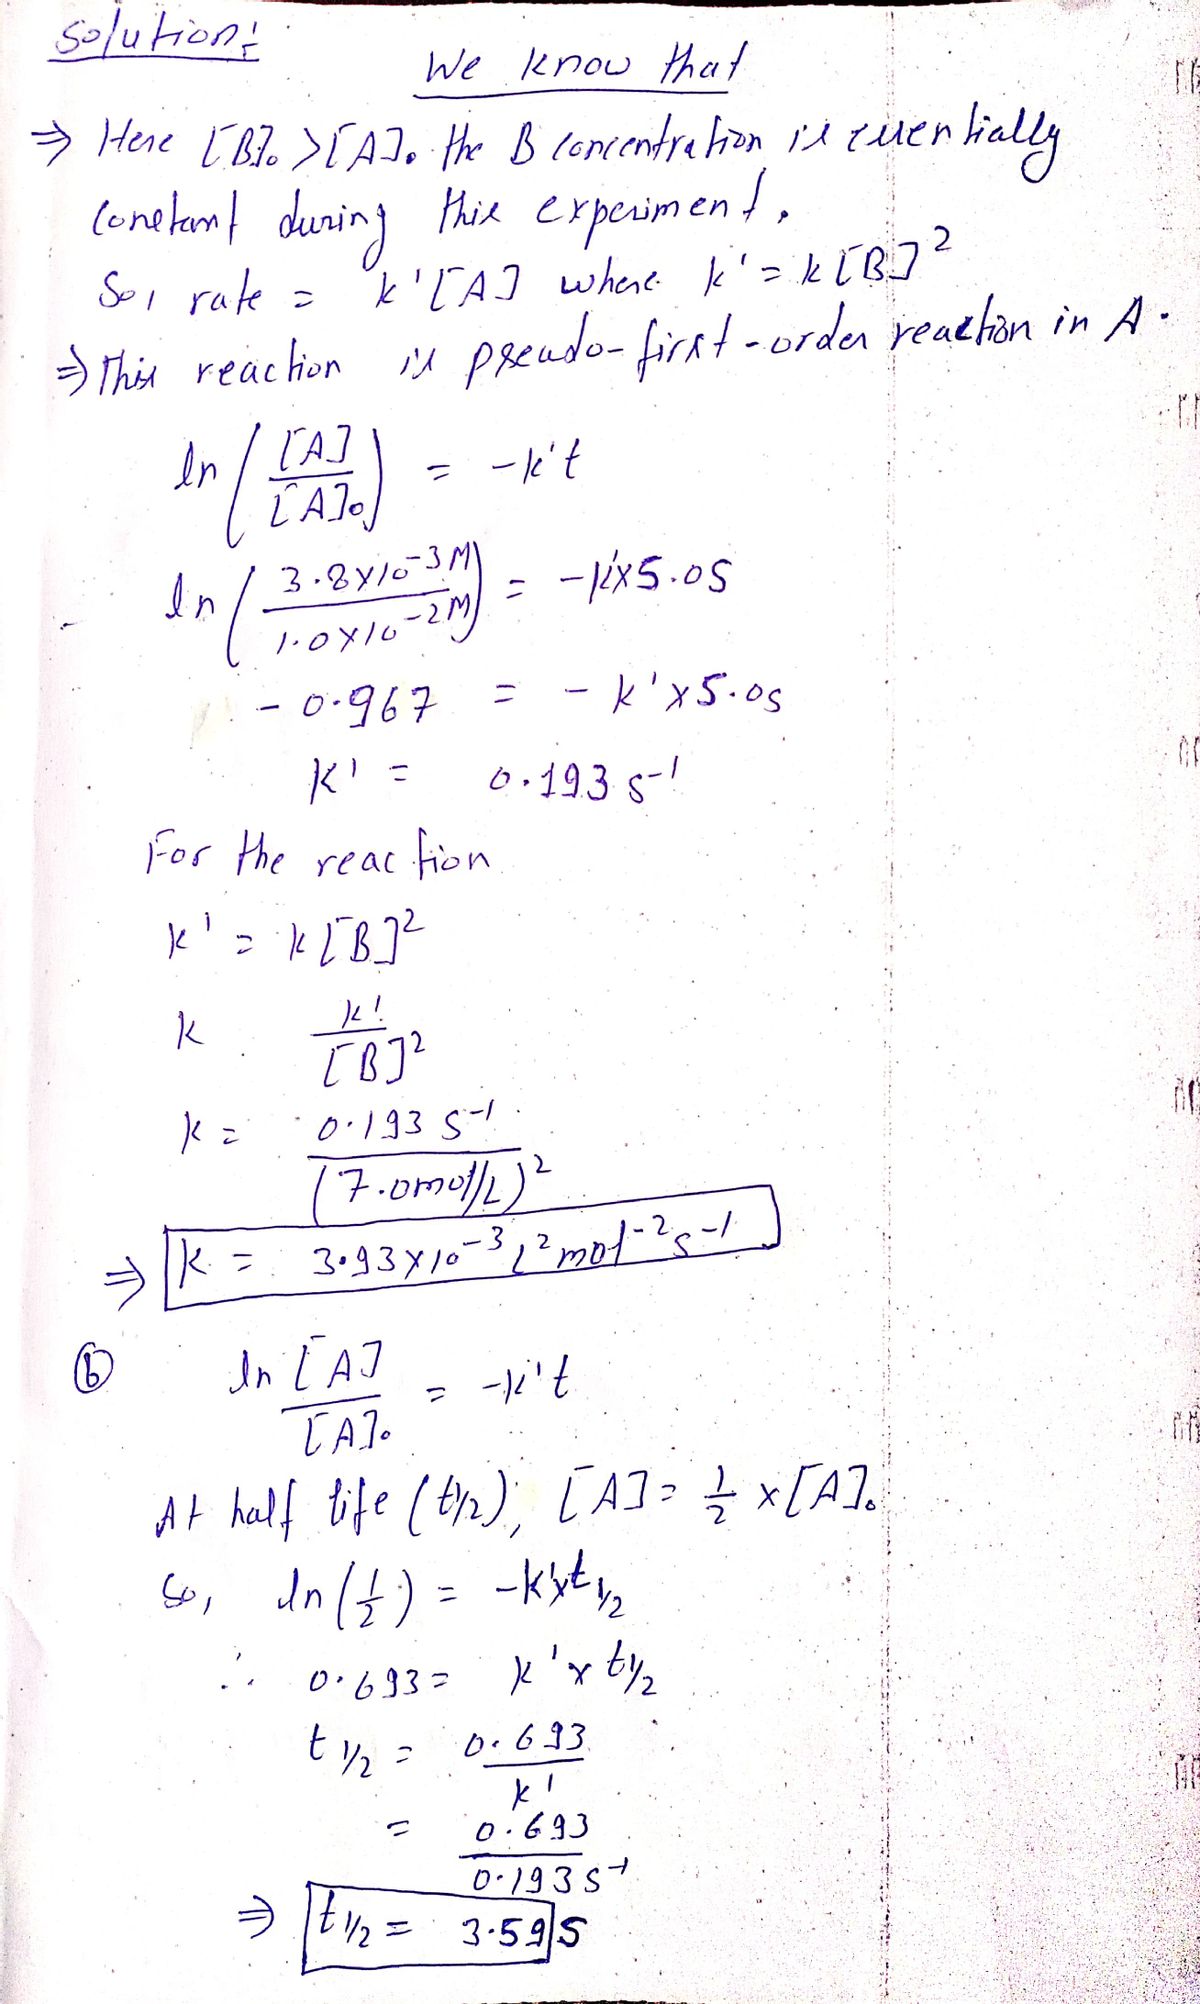 Solution:-
We know that
⇒ Here [B]₀ >[A]₀ the B concentration is essentially
constant during this experiment.
So, rate = k'[A] where k' = k[B]²
⇒ This reaction is pseudo-first-order reaction in A.
ln([A]/[A]₀) = -k't
ln(3.8×10⁻³M/1.0×10⁻²M) = -k'×5.0s
-0.967 = -k'×5.0s
k' = 0.193 s⁻¹
For the reaction
k' = k[B]²
k k'/[B]²
k = 0.193 s⁻¹/(7.0mol/L)²
⇒ k = 3.93×10⁻³ L²mol⁻²s⁻¹
ⓑ ln [A]/[A]₀ = -k't
At half life (t1/2), [A] = 1/2 ×[A]₀
So, ln(1/2) = -k'×t1/2
∴ 0.693 = k'×t1/2
t1/2 = 0.693/k'
= 0.693/0.193s⁻¹
⇒ t1/2 = 3.59s